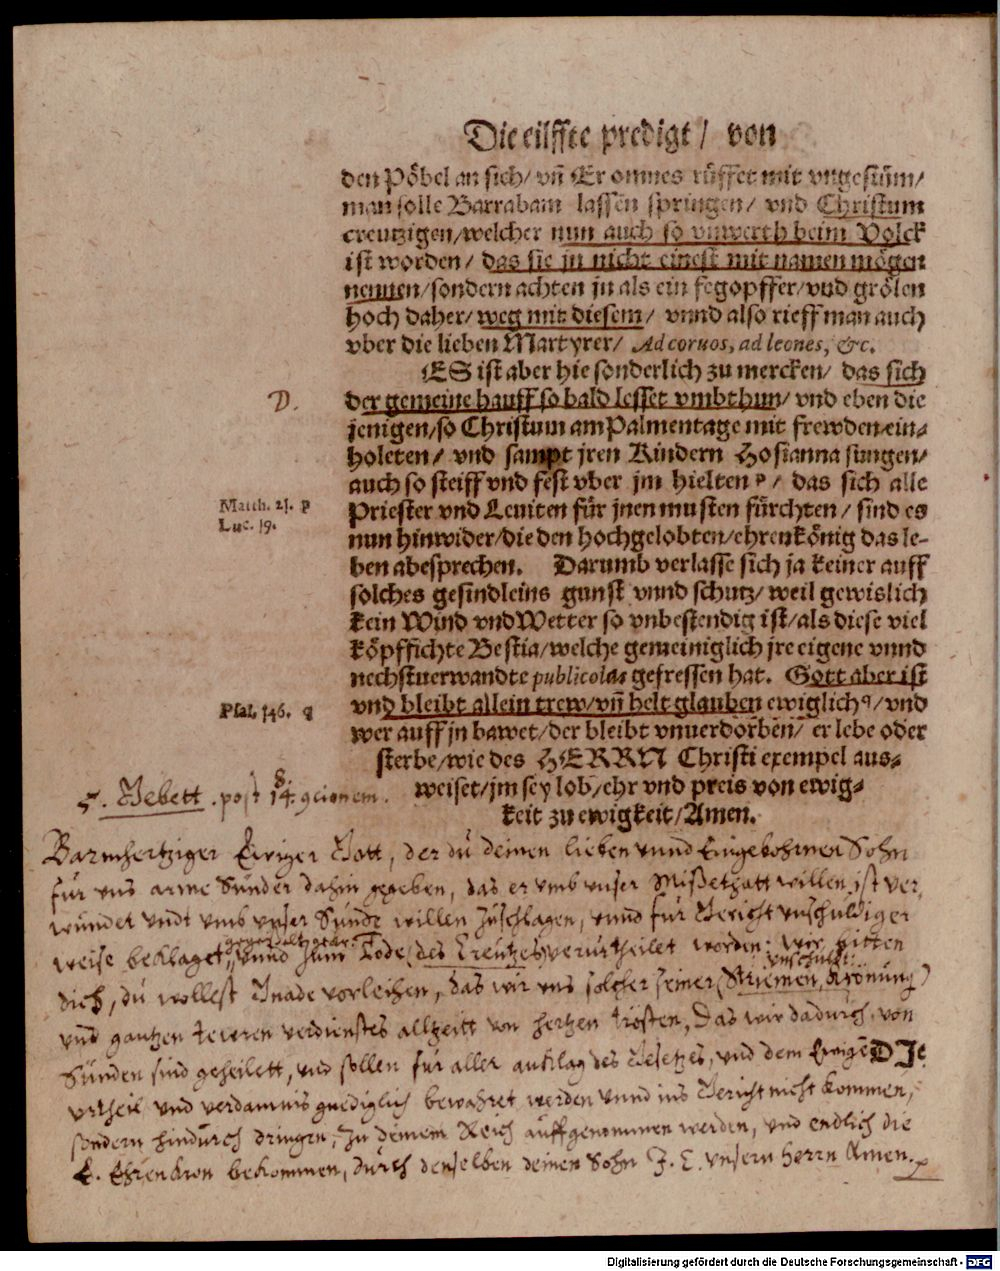 Die eilffte predigt / von
den Pöbel an sich / vñ Er omnes rüffet mit vngestüm /
man solle Barrabam lassen springen / vnd Christum
creutzigen / welcher nun auch so vnwerth beim Volck
ist worden / das sie jn nicht einest mit namen mögen
nennen / sondern achten jn als ein fegopffer / vnd grölen
hoch daher / weg mit diesem / vnnd also rieff man auch
vber die lieben Martyrer / Ad coruos, ad leones, &c.
ES ist aber hie sonderlich zu mercken / das sich
D.
der gemeine hauff so bald lesset vmbthun / vnd eben die
jenigen / so Christum am Palmentage mit frewden ein-
holeten / vnd sampt jren Kindern Hosianna sungen /
auch so steiff vnd fest vber jm hielten p / das sich alle
Matth. 21. p
Priester vnd Leuiten für jnen musten fürchten / sind es
Luc. 19.
nun hinwider / die den hochgelobten / ehrenkönig das le-
ben abesprechen. Darumb verlasse sich ja keiner auff
solches gesindleins gunst vnnd schutz / weil gewislich
kein Wind vnd Wetter so vnbestendig ist / als diese viel
köpffichte Bestia / welche gemeiniglich jre eigene vnnd
nechstuerwandte publicolas gefressen hat. Gott aber ist
Psal. 146. q
vnd bleibt allein trew / vñ helt glauben ewiglich q / vnd
wer auff jn bawet / der bleibt vnuerdorben / er lebe oder
sterbe / wie des HERRN Christi exempel aus-
weiset / jm sey lob / ehr vnd preis von ewig-
keit zu ewigkeit / Amen.
Gebett . post 14.
8.
Barmhertziger Ewiger Gott, der du deinen lieben vnnd Eingebohrnen Sohn
für vns arme Sünder dahin gegeben, das er vmb vnser Mißethatt willen ist ver,
wundet vndt vmb vnser Sünde willen zuschlagen, vnnd für Gericht vnschuldiger
weise beklaget, vnnd zum Tode (des Creutzes) verurtheilet worden: Wir bitten
dich, du wollest Gnade vorleihen, das wir vns solcher seiner (Striemen, Krönung)
vnd gantzen teuren verdienstes allzeitt von hertzen trösten, Das wir dadurch von
Sünden sind geheilett, vnd sollen für aller anklag des Gesetzes, vnd dem Ewigē
DJe
vrtheil vnd verdamnis gnediglich bewahret werden vnnd ins Gericht nicht kommen,
sondern hindurch dringen, zu deinem Reich auffgenommen werden, vnd endlich die
E. Ehrenkron bekommen, durch denselben deinen Sohn J. C. vnsern Herrn Amen.
Digitalisierung gefördert durch die Deutsche Forschungsgemeinschaft - DFG